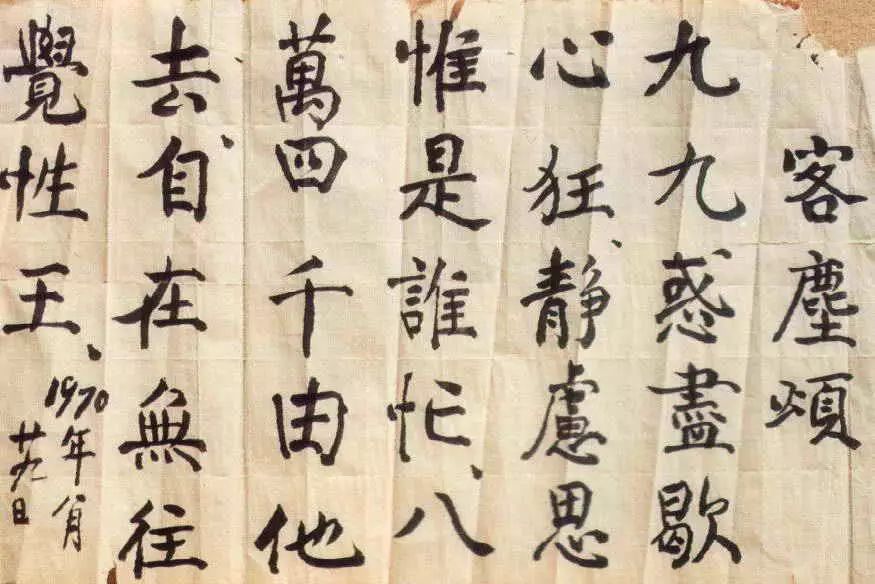 客塵頌
九九惑盡歇
心狂、靜慮思
惟是誰忙、八
萬四千由他
去、自在無往
覺性王、
1970年
廿九日